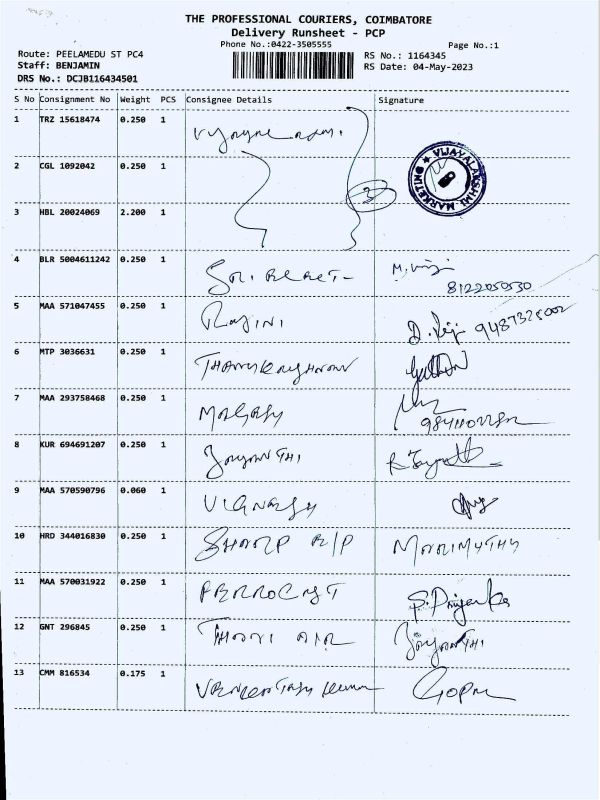 THE PROFESSIONAL COURIERS, COIMBATORE
Delivery Runsheet - PCP
Phone No.:0422-3505555
Page No.:1
Route: PEELAMEDU ST PC4
RS No.: 1164345
Staff: BENJAMIN
RS Date: 04-May-2023
DRS No.: DCJB116434501
S No Consignment No Weight PCS Consignee Details Signature
1 TRZ 15618474 0.250 1
2 CGL 1092042 0.250 1
3
VIJAYALAKSHMI MARKETING
3 HBL 20024069 2.200 1
4 BLR 5004611242 0.250 1
8122050530
5 MAA 571047455 0.250 1 RAJINI
6 MTP 3036631 0.250 1
7 MAA 293758468 0.250 1
8 KUR 694691207 0.250 1 JAYANTHI
9 MAA 570590796 0.060 1 VIGNESH
10 HRD 344016830 0.250 1 SHARP R/P MARIMUTHU
11 MAA 570031922 0.250 1 S. Priyanka
12 GNT 296845 0.250 1 JAYANTHI
13 CMM 816534 0.175 1 GOPAL